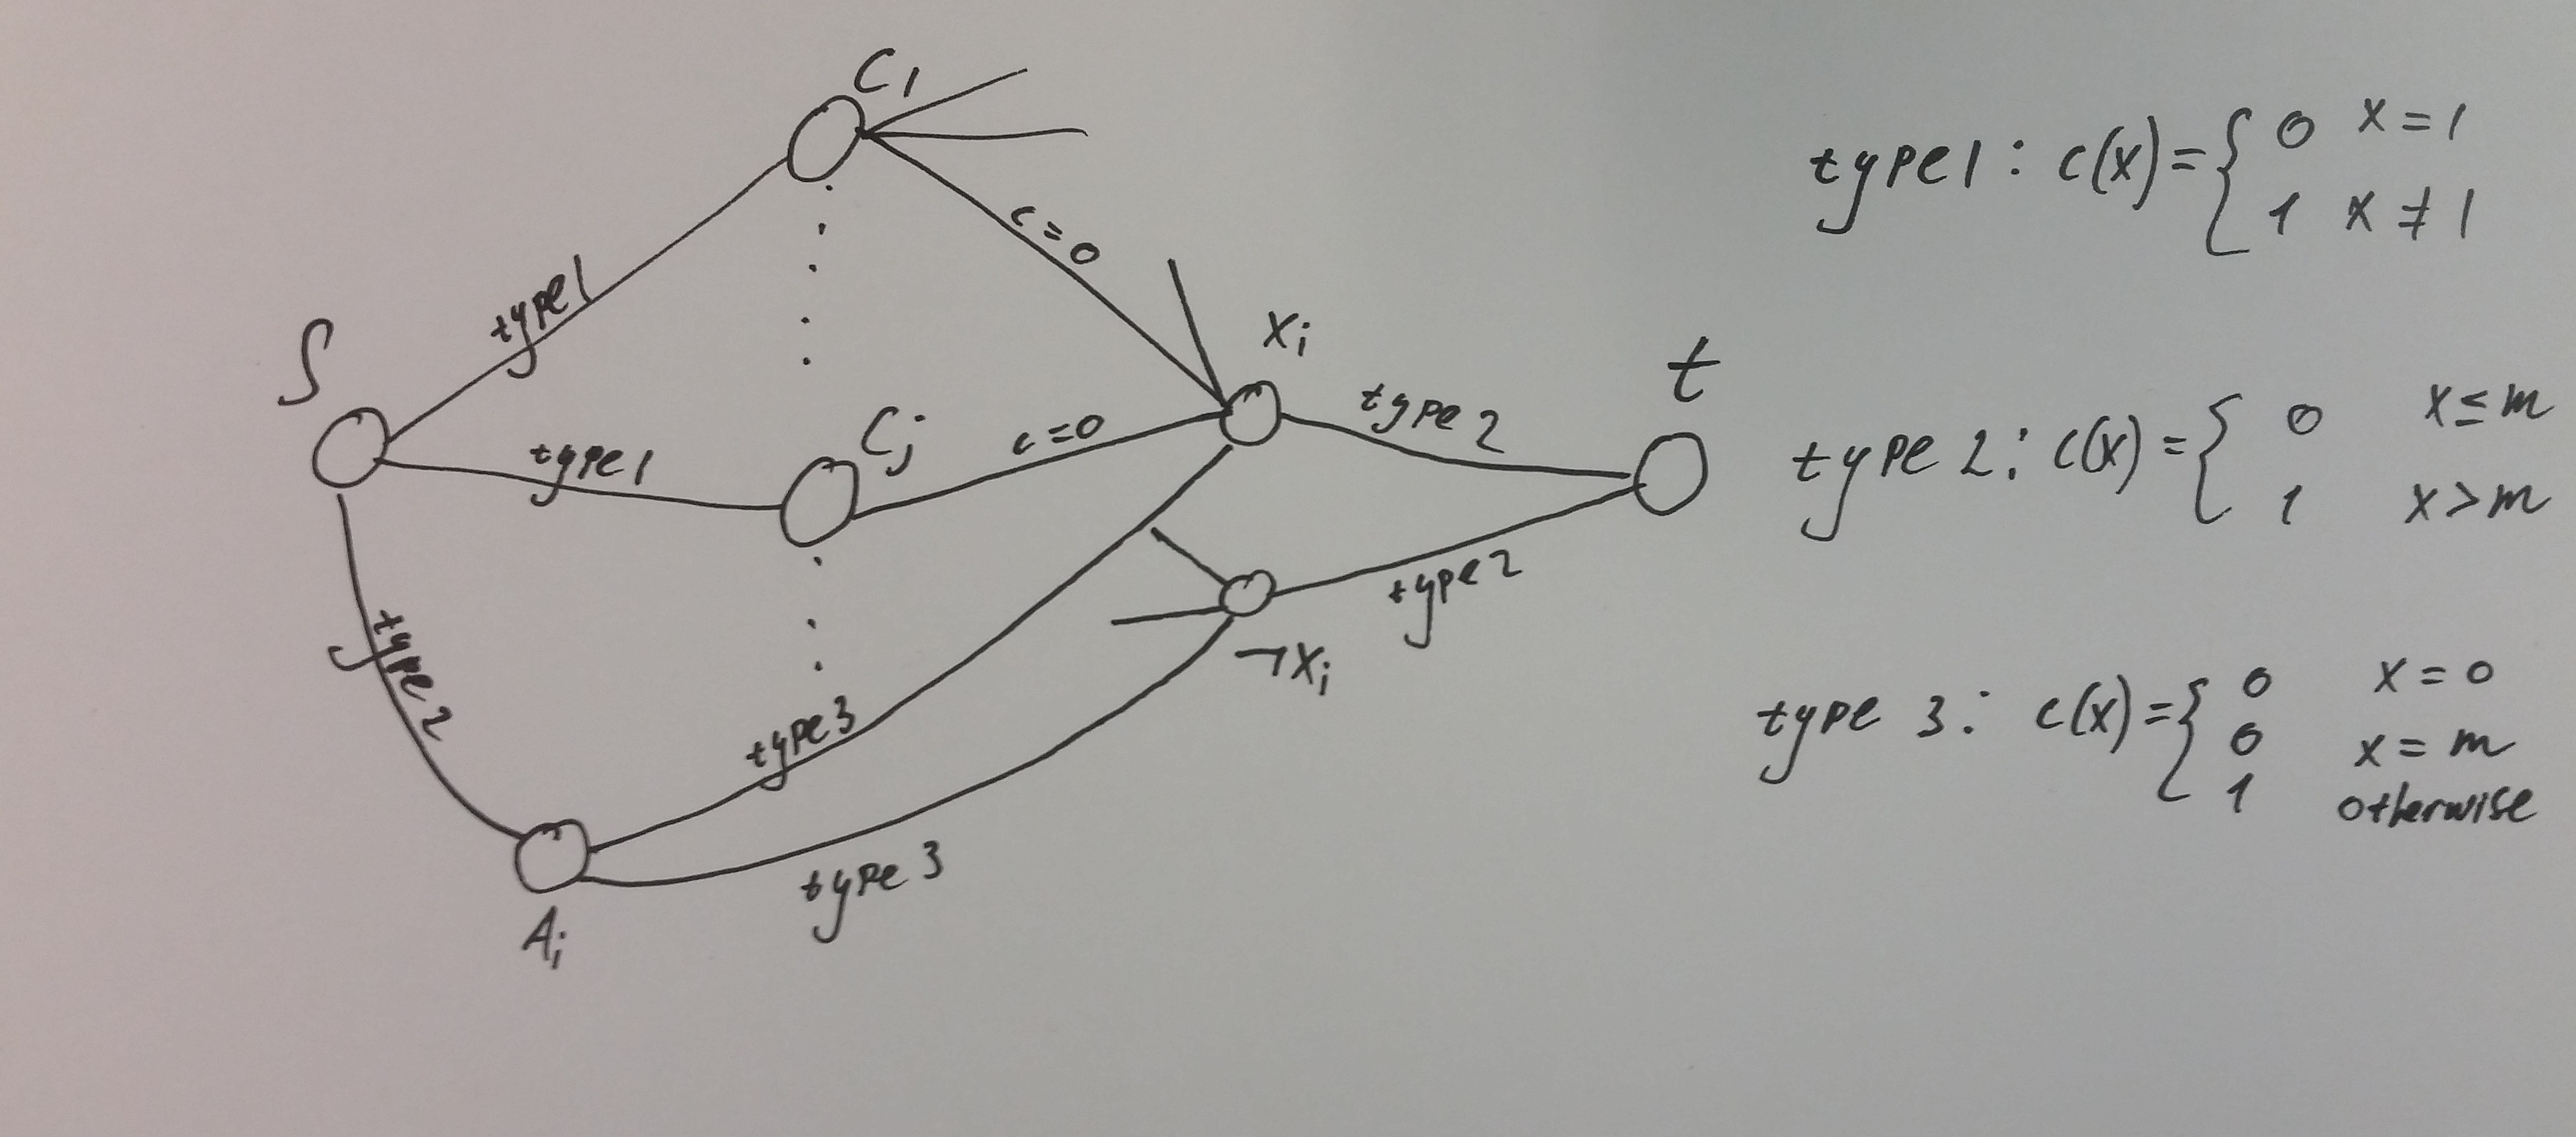 C1
S
type1
c=0
xi
t
type1
Cj
c=0
type2
type2
type2
¬xi
type3
type3
Ai
type1: c(x)={ 0 x=1
1 x≠1
type2: c(x)={ 0 x≤m
1 x>m
type 3: c(x)={ 0 x=0
0 x=m
1 otherwise